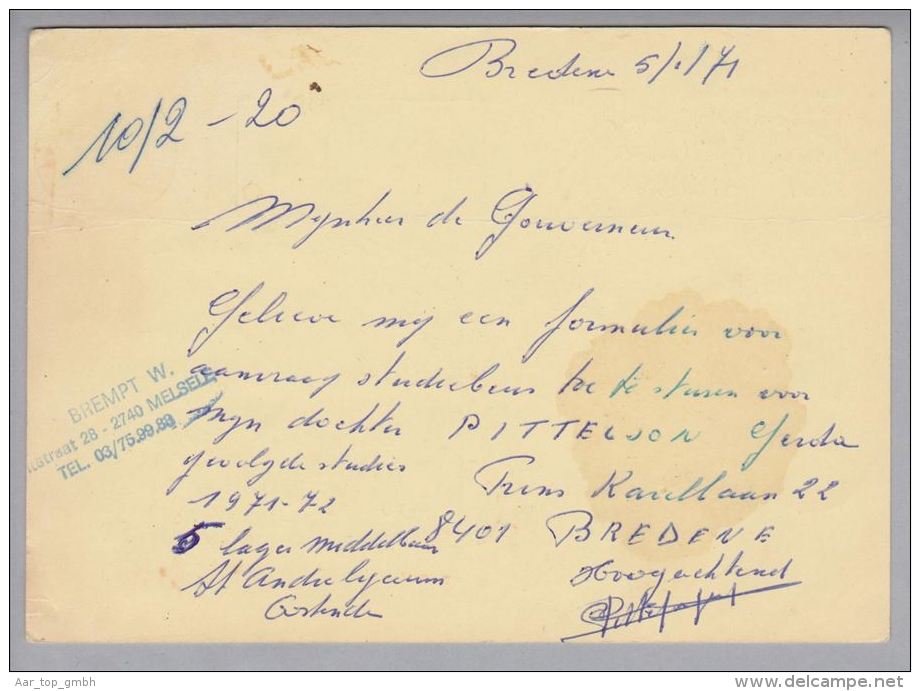 Bredene 5/1/71
10/2 - 20
Mynheer de Gouverneur
Gelieve mij een formulier voor
aanvraag studiebeurs toe te sturen voor
mijn dochter PITTELJON Gerda
gevolgde studies Prins Karellaan 22
1971-72
8401 BREDENE
5 lager middelbaar
St Andrelyceum Hoogachtend
Oostende
BREMPT W.
straat 28 - 2740 MELSELE
TEL. 03/75.99.89
Aar_top_gmbh
delcampe.net